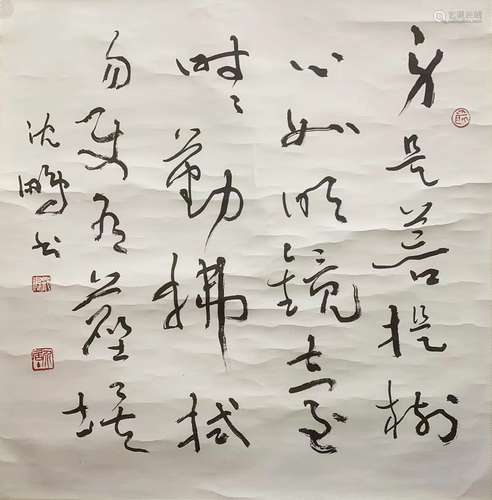 身是菩提樹
心如明鏡臺
時〻勤拂拭
勿使有塵埃
沈鵬書